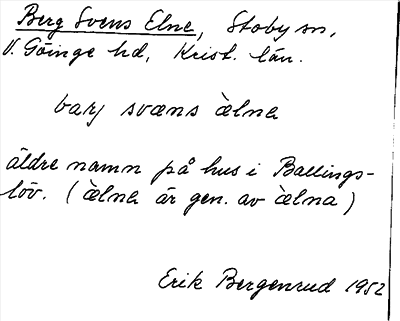 Berg Svens Elne, Stoby sn,
V. Göinge hd, Krist. län.
barj svæns æ̀lna
äldre namn på hus i Ballings-
löv. (æ̀lna är gen. av æ̀lna)
Erik Bergenrud 1952